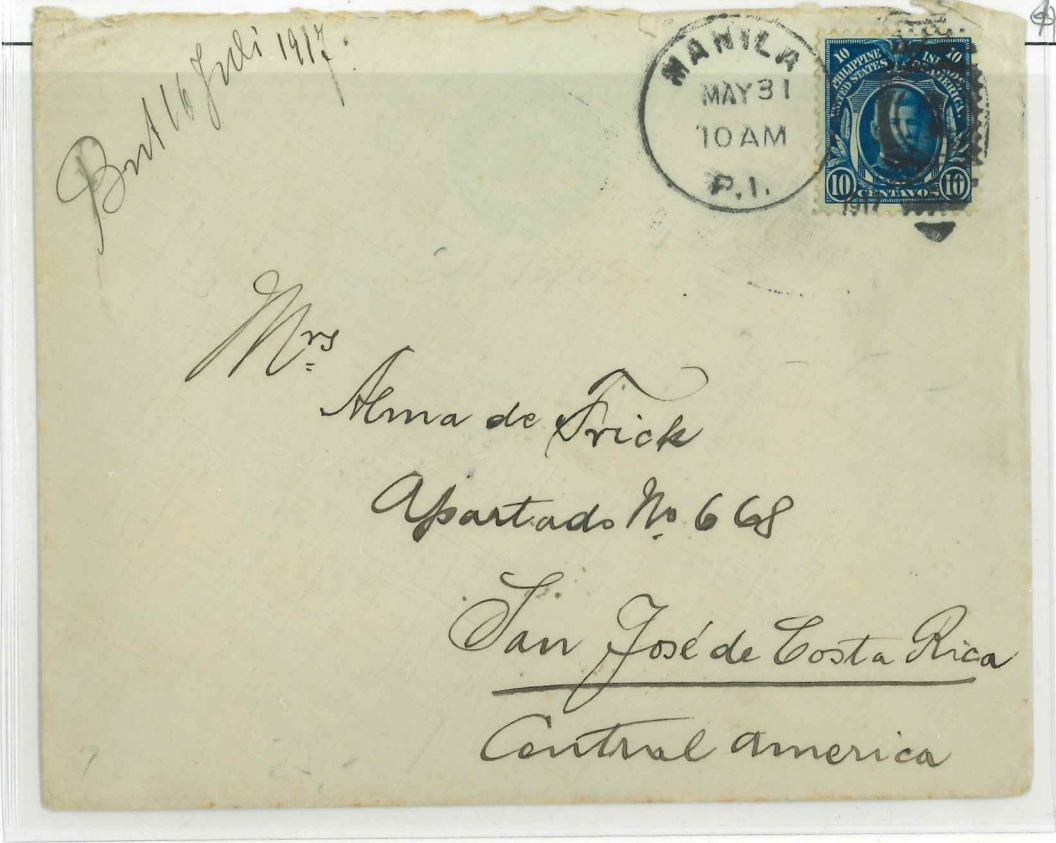 16 Juli 1917.
MANILA
MAY 31
10 AM
P.I.
1917
10 10
PHILIPPINE ISLANDS
UNITED STATES OF AMERICA.
10 CENTAVOS 10
Mrs
Alma de Frick
Apartado No 668
San José de Costa Rica
Central America